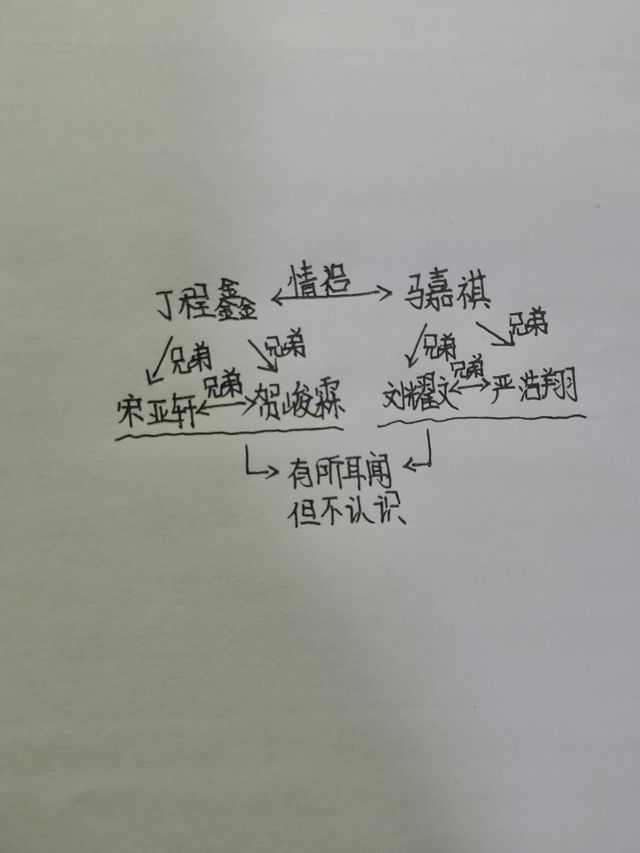 丁程鑫 情侣 马嘉祺
兄弟 兄弟 兄弟 兄弟
宋亚轩 兄弟 贺峻霖 刘耀文 兄弟 严浩翔
有所耳闻
但不认识